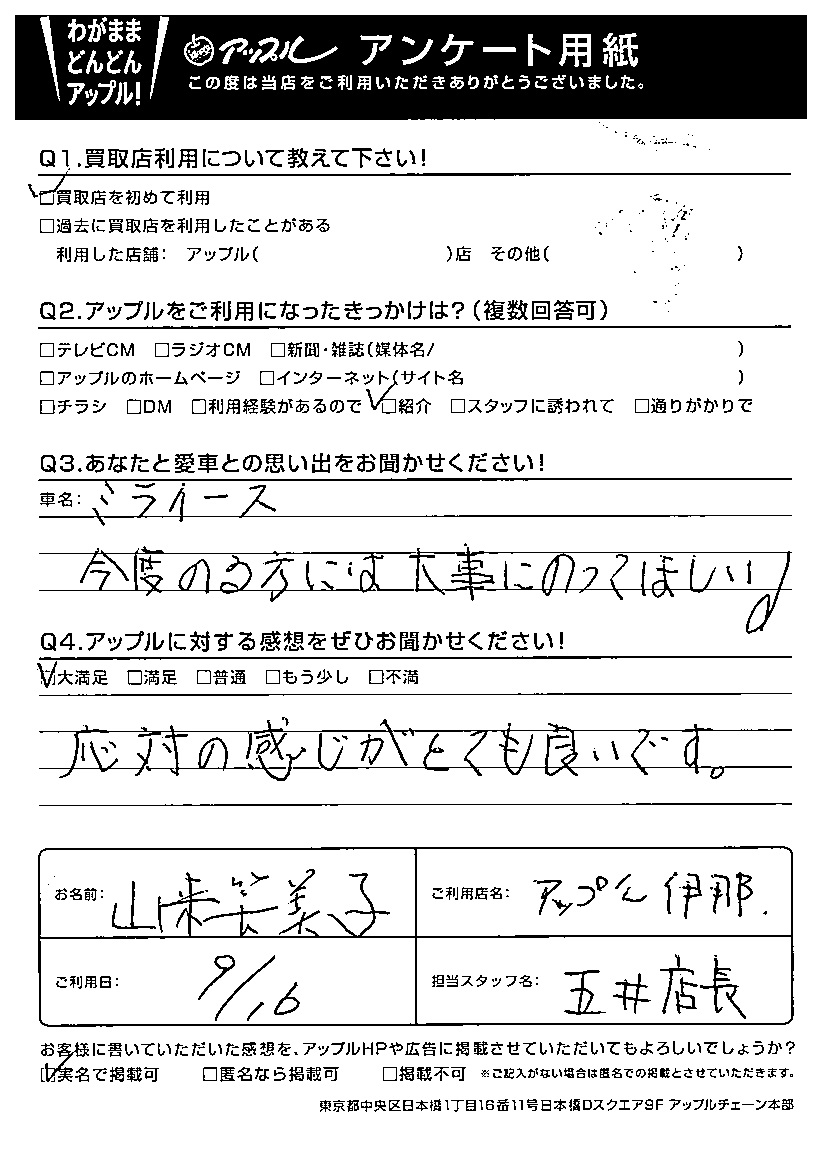 わがまま
どんどん
アップル!
アップル アンケート用紙
この度は当店をご利用いただきありがとうございました。
Q1.買取店利用について教えて下さい!
□買取店を初めて利用
□過去に買取店を利用したことがある
利用した店舗: アップル( )店 その他( )
Q2.アップルをご利用になったきっかけは?(複数回答可)
□テレビCM □ラジオCM □新聞・雑誌(媒体名/ )
□アップルのホームページ □インターネット(サイト名 )
□チラシ □DM □利用経験があるので □紹介 □スタッフに誘われて □通りがかりで
Q3.あなたと愛車との思い出をお聞かせください!
車名: ミライース
今度のる方には大事にのってほしい!
Q4.アップルに対する感想をぜひお聞かせください!
□大満足 □満足 □普通 □もう少し □不満
応対の感じがとても良いです。
お名前: 山 美子
ご利用店名: アップル伊那.
ご利用日: 9/16
担当スタッフ名: 五井店長
お客様に書いていただいた感想を、アップルHPや広告に掲載させていただいてもよろしいでしょうか?
□実名で掲載可 □匿名なら掲載可 □掲載不可 ※ご記入がない場合は匿名での掲載とさせていただきます。
東京都中央区日本橋1丁目16番11号日本橋Dスクエア9F アップルチェーン本部